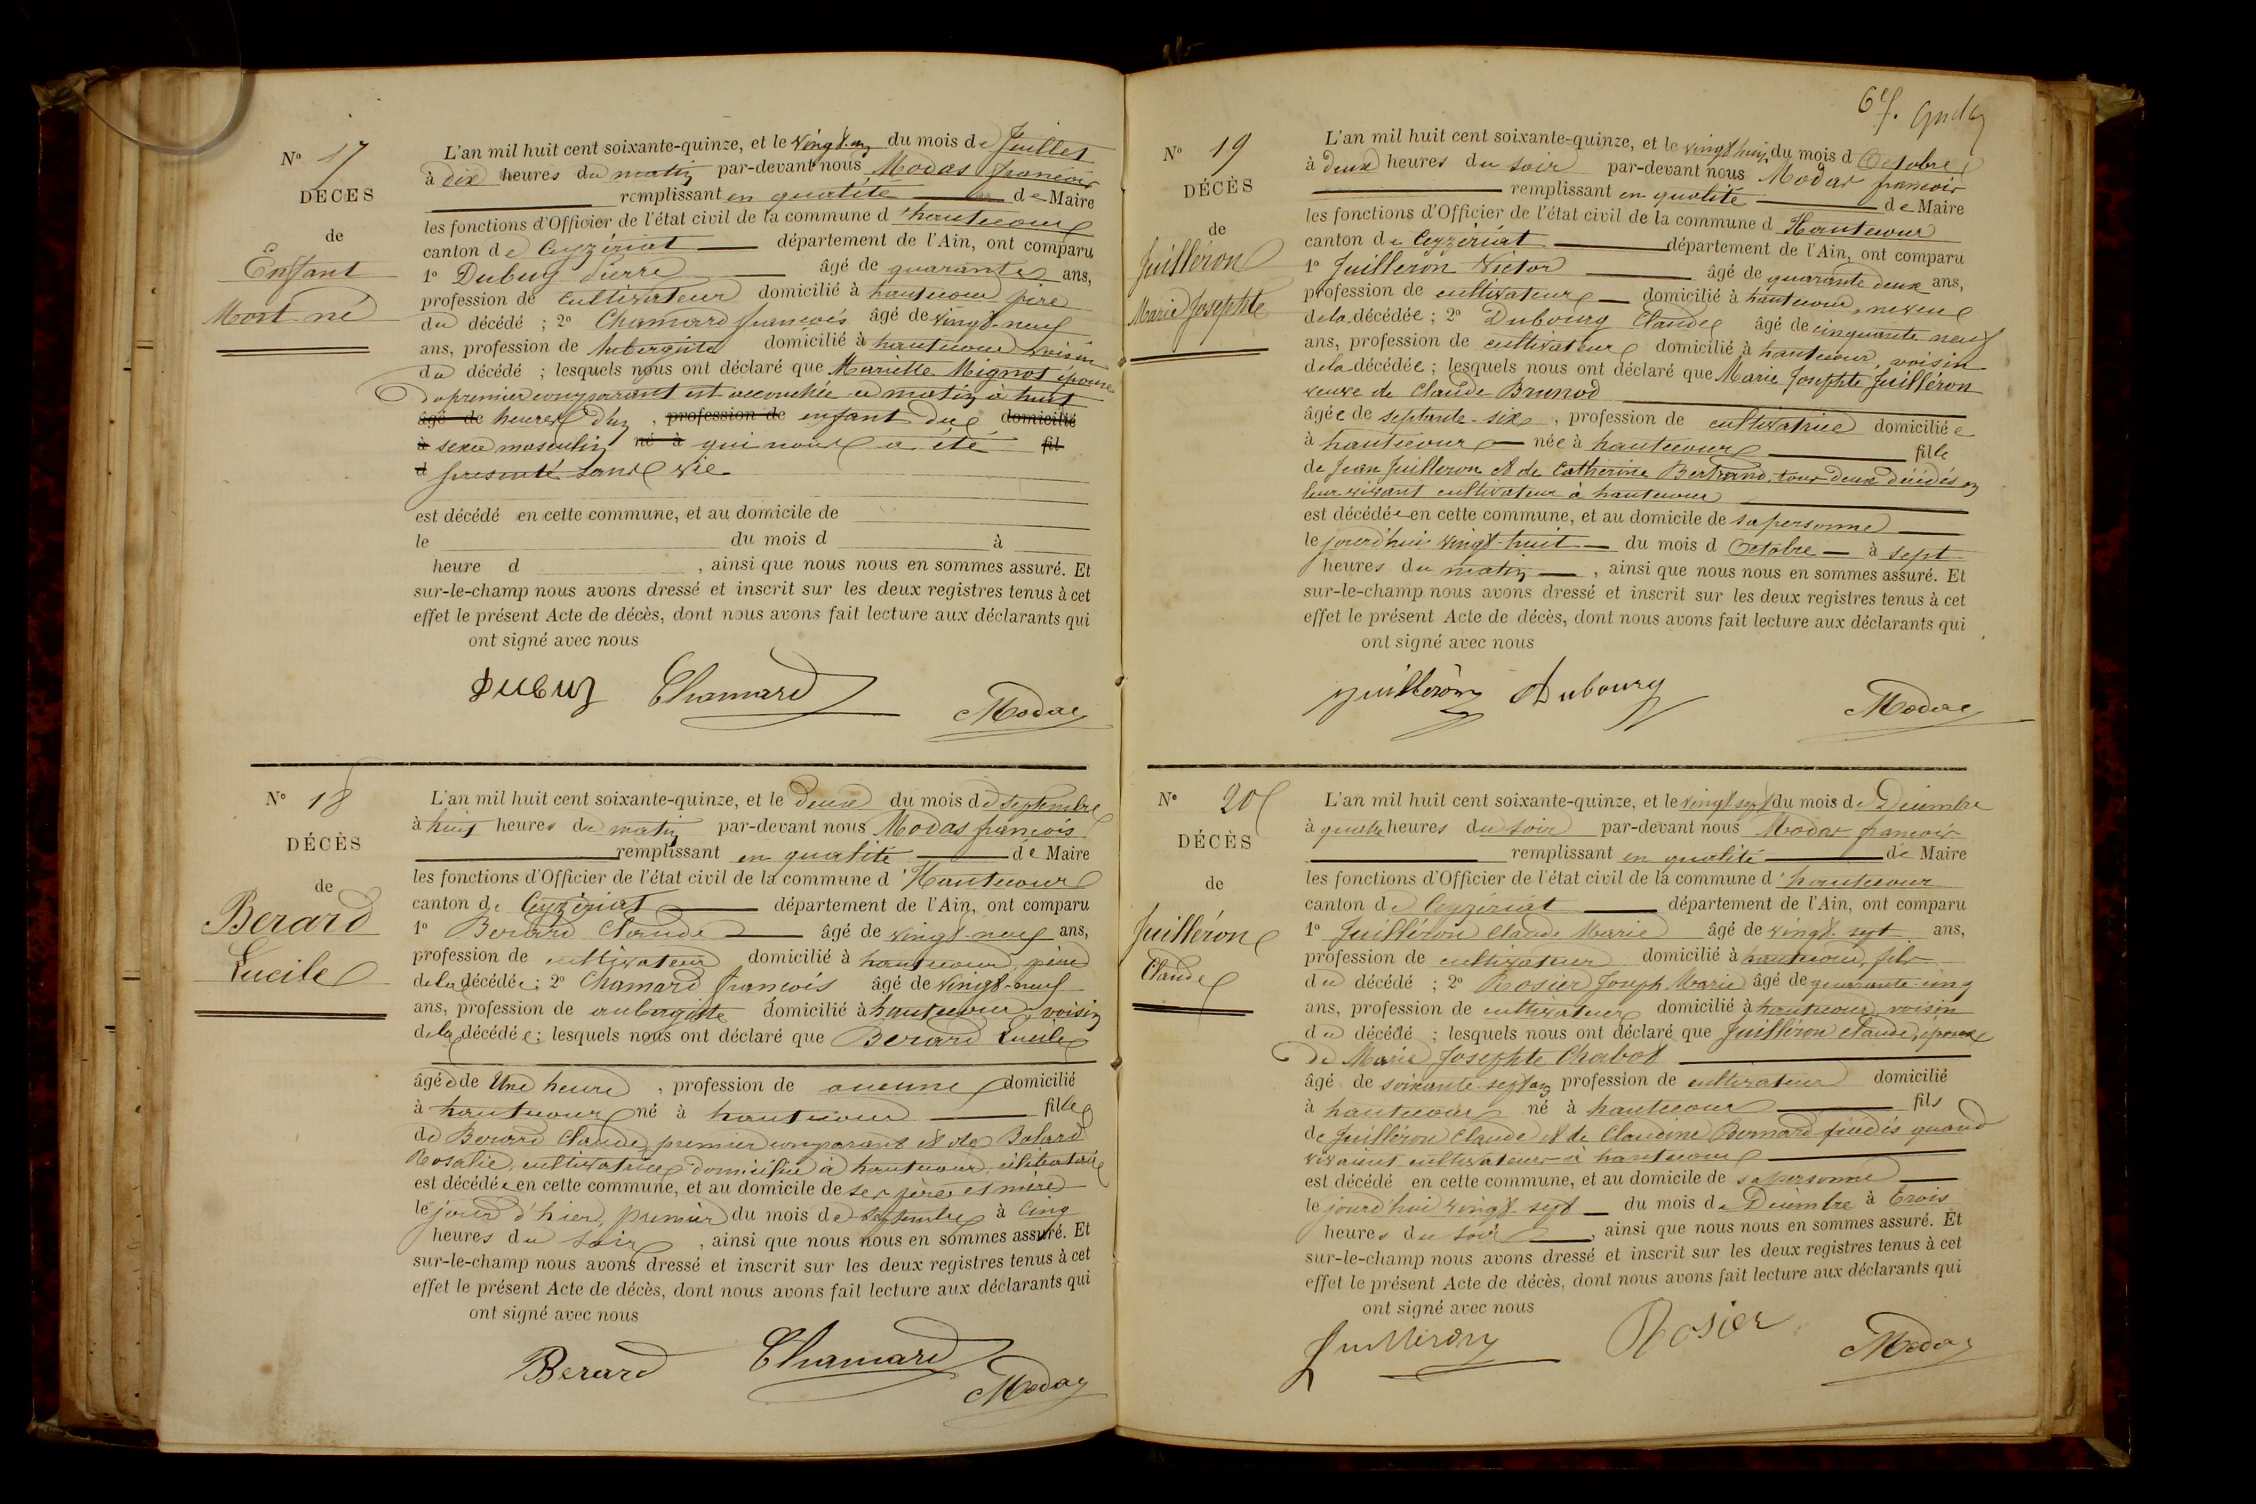 N° 17
DÉCES
de
Enfant
Mort né
L'an mil huit cent soixante-quinze, et le vingt-un du mois de Juillet
à dix heures du matin par-devant nous Modas françois
remplissant en qualité de Maire
les fonctions d'Officier de l'état civil de la commune d'hautecour
canton de Ceyzériat département de l'Ain, ont comparu
1° Dubuy Pierre âgé de quarante ans,
profession de cultivateur domicilié à hautecour père
du décédé ; 2° Chamard françois âgé de vingt-neuf
ans, profession de Aubergiste domicilié à hautecour voisin
du décédé ; lesquels nous ont déclaré que Mariette Mignot épouse
du premier comparant est accouchée ce matin à huit
âgé de heures d'un , profession de enfant du domicilié
à sexe masculin né à qui nous a été fil
d présenté sans vie
est décédé en cette commune, et au domicile de
le du mois d à
heure d , ainsi que nous nous en sommes assuré. Et
sur-le-champ nous avons dressé et inscrit sur les deux registres tenus à cet
effet le présent Acte de décès, dont nous avons fait lecture aux déclarants qui
ont signé avec nous
Dubuy Chamard Modas
N° 18
DÉCÈS
de
Berard
Lucile
L'an mil huit cent soixante-quinze, et le deux du mois de septembre
à huit heures du matin par-devant nous Modas françois
remplissant en qualité de Maire
les fonctions d'Officier de l'état civil de la commune d'Hautecour
canton de Ceyzériat département de l'Ain, ont comparu
1° Berard Claude âgé de vingt-neuf ans,
profession de cultivateur domicilié à hautecour, père
de la décédée ; 2° Chamard françois âgé de vingt-neuf
ans, profession de aubergiste domicilié à hautecour, voisin
de la décédée ; lesquels nous ont déclaré que Berard Lucile
âgée de Une heure , profession de aucune domicilié
à hautecour né à hautecour fille
de Berard Claude premier comparant et de Bolard
Rosalie, cultivatrice domiciliée à hautecour,
est décédée en cette commune, et au domicile de ses père et mère
le jour d'hier, premier du mois de septembre à cinq
heures du soir , ainsi que nous nous en sommes assuré. Et
sur-le-champ nous avons dressé et inscrit sur les deux registres tenus à cet
effet le présent Acte de décès, dont nous avons fait lecture aux déclarants qui
ont signé avec nous
Berard Chamard Modas
N° 19
DÉCÈS
de
Juilléron
Marie Josephte
L'an mil huit cent soixante-quinze, et le vingt huit du mois d Octobre
à deux heures du soir par-devant nous Modas françois
remplissant en qualité de Maire
les fonctions d'Officier de l'état civil de la commune d Hautecour
canton de Ceyzériat département de l'Ain, ont comparu
1° Juilleron Victor âgé de quarante deux ans,
profession de cultivateur domicilié à hautecour, neveu
de la décédée ; 2° Dubourg Claude âgé de cinquante neuf
ans, profession de cultivateur domicilié à hautecour, voisin
de la décédée ; lesquels nous ont déclaré que Marie Josephte Juilléron
veuve de Claude Brunod
âgée de septante-six , profession de cultivatrice domiciliée
à hautecour née à hautecour fille
de Jean Juilleron et de Catherine Bertrand, tous deux décédés en
leur vivant cultivateur à hautecour
est décédée en cette commune, et au domicile de sa personne
le jourd'hui vingt-huit du mois d Octobre à sept
heures du matin , ainsi que nous nous en sommes assuré. Et
sur-le-champ nous avons dressé et inscrit sur les deux registres tenus à cet
effet le présent Acte de décès, dont nous avons fait lecture aux déclarants qui
ont signé avec nous
Juilleron Dubourg Modas
N° 20
DÉCÈS
de
Juilléron
Claude
L'an mil huit cent soixante-quinze, et le vingt sept du mois de Décembre
à quatre heures du soir par-devant nous Modas françois
remplissant en qualité de Maire
les fonctions d'Officier de l'état civil de la commune d'hautecour
canton de Ceyzériat département de l'Ain, ont comparu
1° Juilléron Claude Marie âgé de vingt-sept ans,
profession de cultivateur domicilié à hautecour, fils
du décédé ; 2° Rosier Joseph Marie âgé de quarante-cinq
ans, profession de cultivateur domicilié à hautecour, voisin
du décédé ; lesquels nous ont déclaré que Juilléron Claude, époux
de Marie Josephte Chabot
âgé de soixante-sept ans profession de cultivateur domicilié
à hautecour né à hautecour fils
de Juilléron Claude et de Claudine Bernard quand
vivaient cultivateurs à hautecour
est décédé en cette commune, et au domicile de sa personne
le jourd'hui vingt-sept du mois de Décembre à trois
heures du soir , ainsi que nous nous en sommes assuré. Et
sur-le-champ nous avons dressé et inscrit sur les deux registres tenus à cet
effet le présent Acte de décès, dont nous avons fait lecture aux déclarants qui
ont signé avec nous
Juilleron Rosier Modas